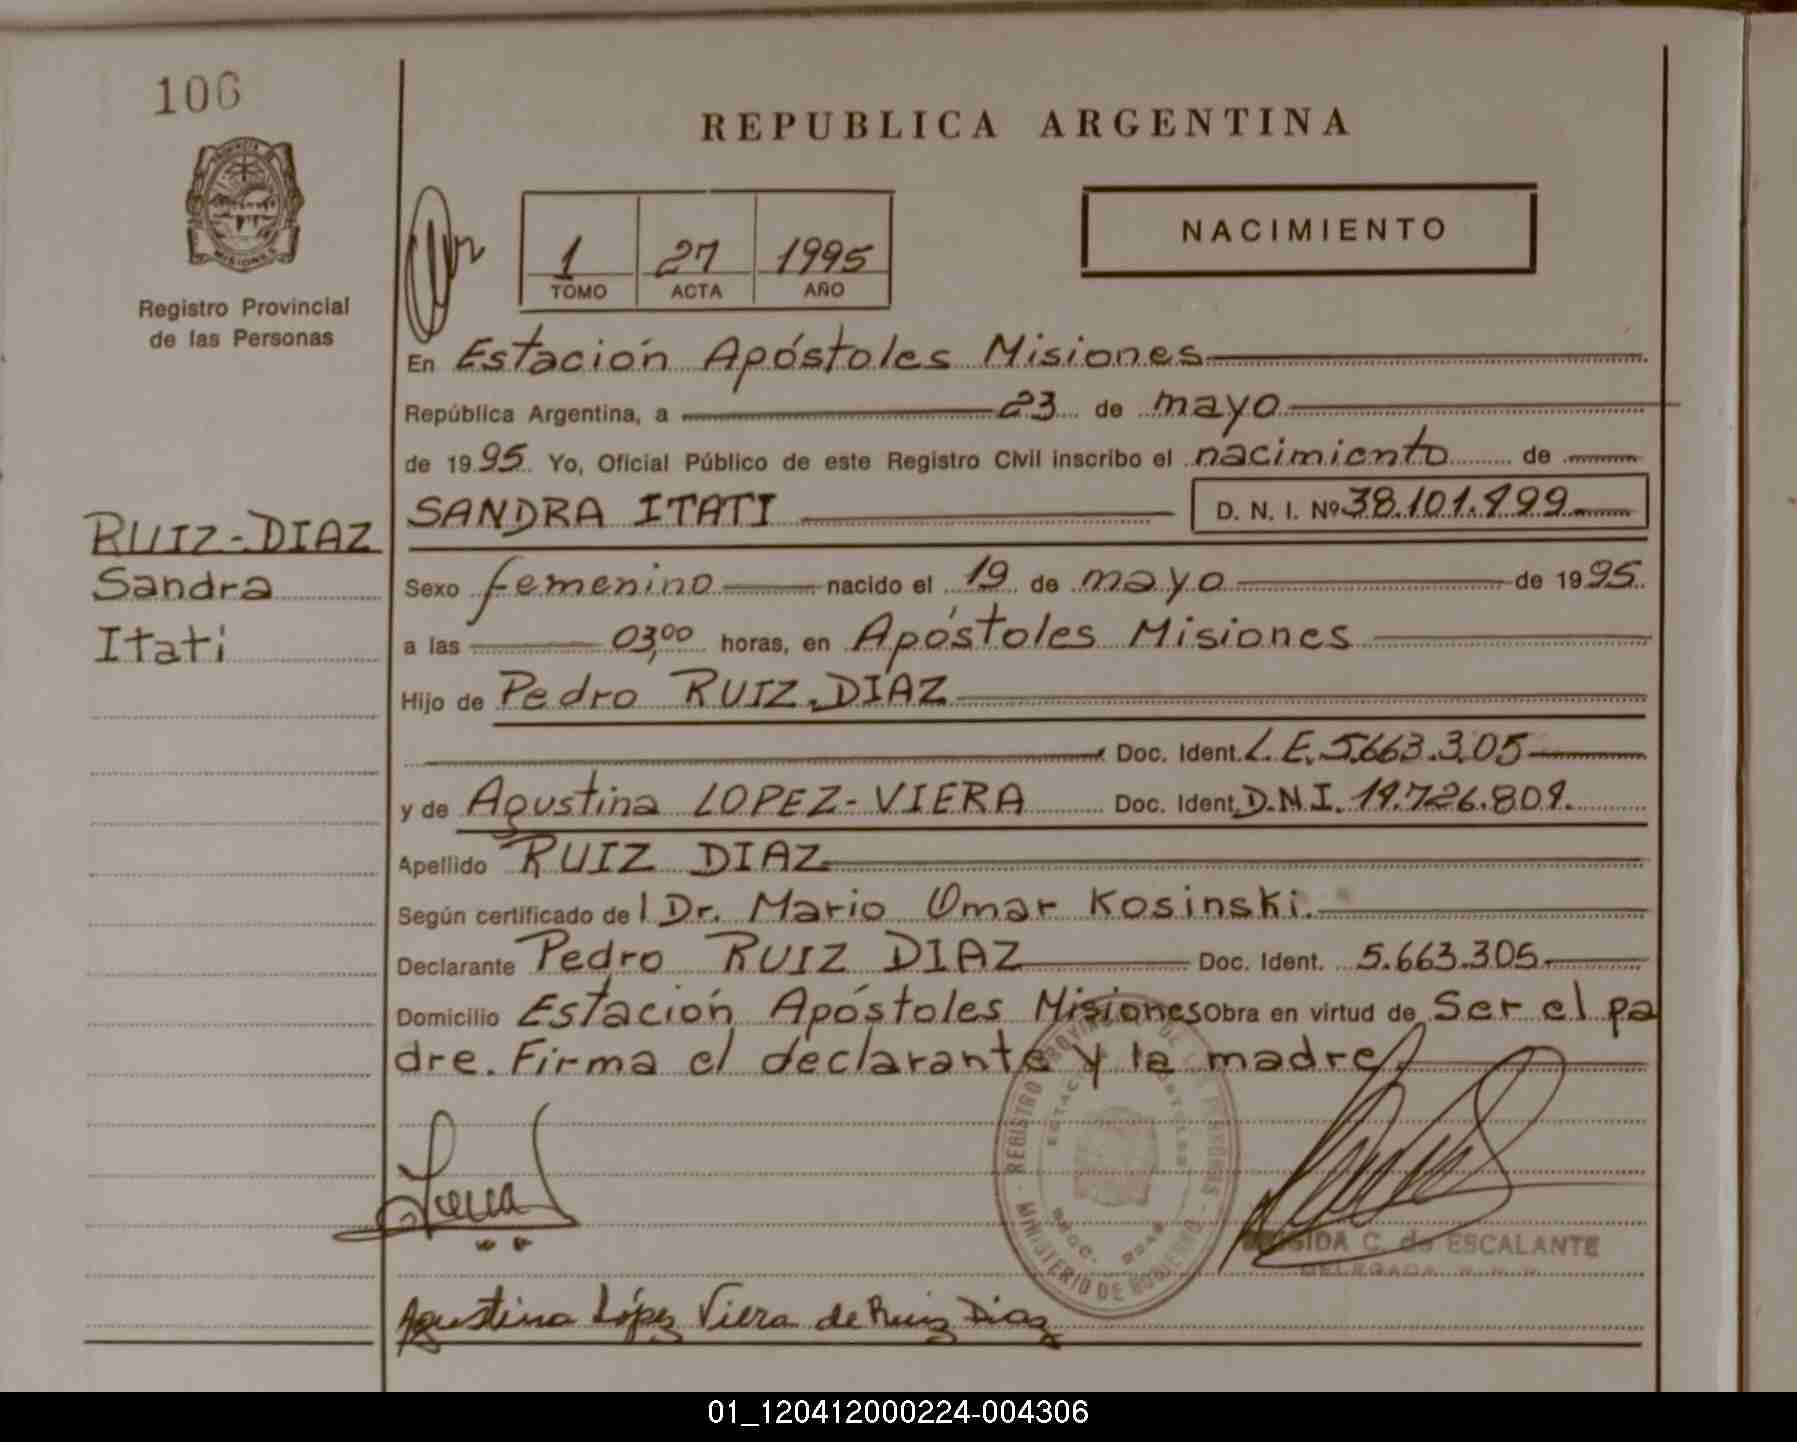 106
REPUBLICA ARGENTINA
1 27 1995
TOMO ACTA AÑO
NACIMIENTO
PROVINCIA DE
MISIONES
Registro Provincial
de las Personas
En Estación Apóstoles Misiones
República Argentina, a 23 de mayo
de 1995 Yo, Oficial Público de este Registro Civil inscribo el nacimiento de
SANDRA ITATI D. N. I. Nº 38.101.999
RUIZ-DIAZ
Sandra
Itati
Sexo femenino nacido el 19 de mayo de 1995.
a las 03,00 horas, en Apóstoles Misiones
Hijo de Pedro RUIZ-DIAZ
Doc. Ident. L.E. 5.663.305
y de Agustina LOPEZ-VIERA Doc. Ident. D.N.I.
Apellido RUIZ DIAZ
Según certificado del Dr. Mario Omar Kosinski.
Declarante Pedro RUIZ DIAZ Doc. Ident. 5.663.305
Domicilio Estación Apóstoles Misiones Obra en virtud de Ser el pa
dre. Firma el declarante y la madre
REGISTRO PROVINCIAL DE LAS PERSONAS - MINISTERIO DE GOBIERNO -
C. de ESCALANTE
DELEGADA
Agustina López Viera de Ruiz Diaz
01_120412000224-004306